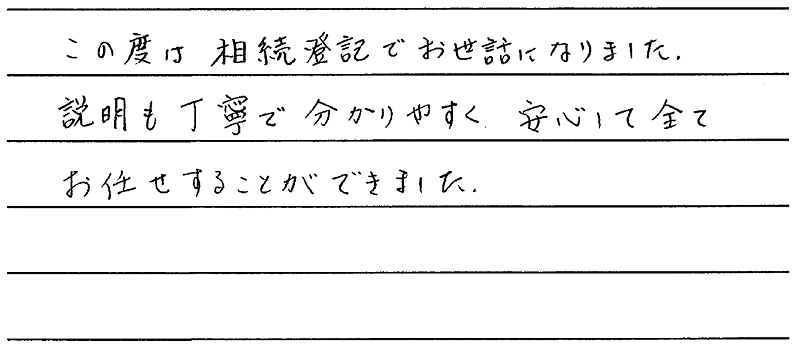 この度は相続登記でお世話になりました.
説明も丁寧で分かりやすく、安心して全て
お任せすることができました.